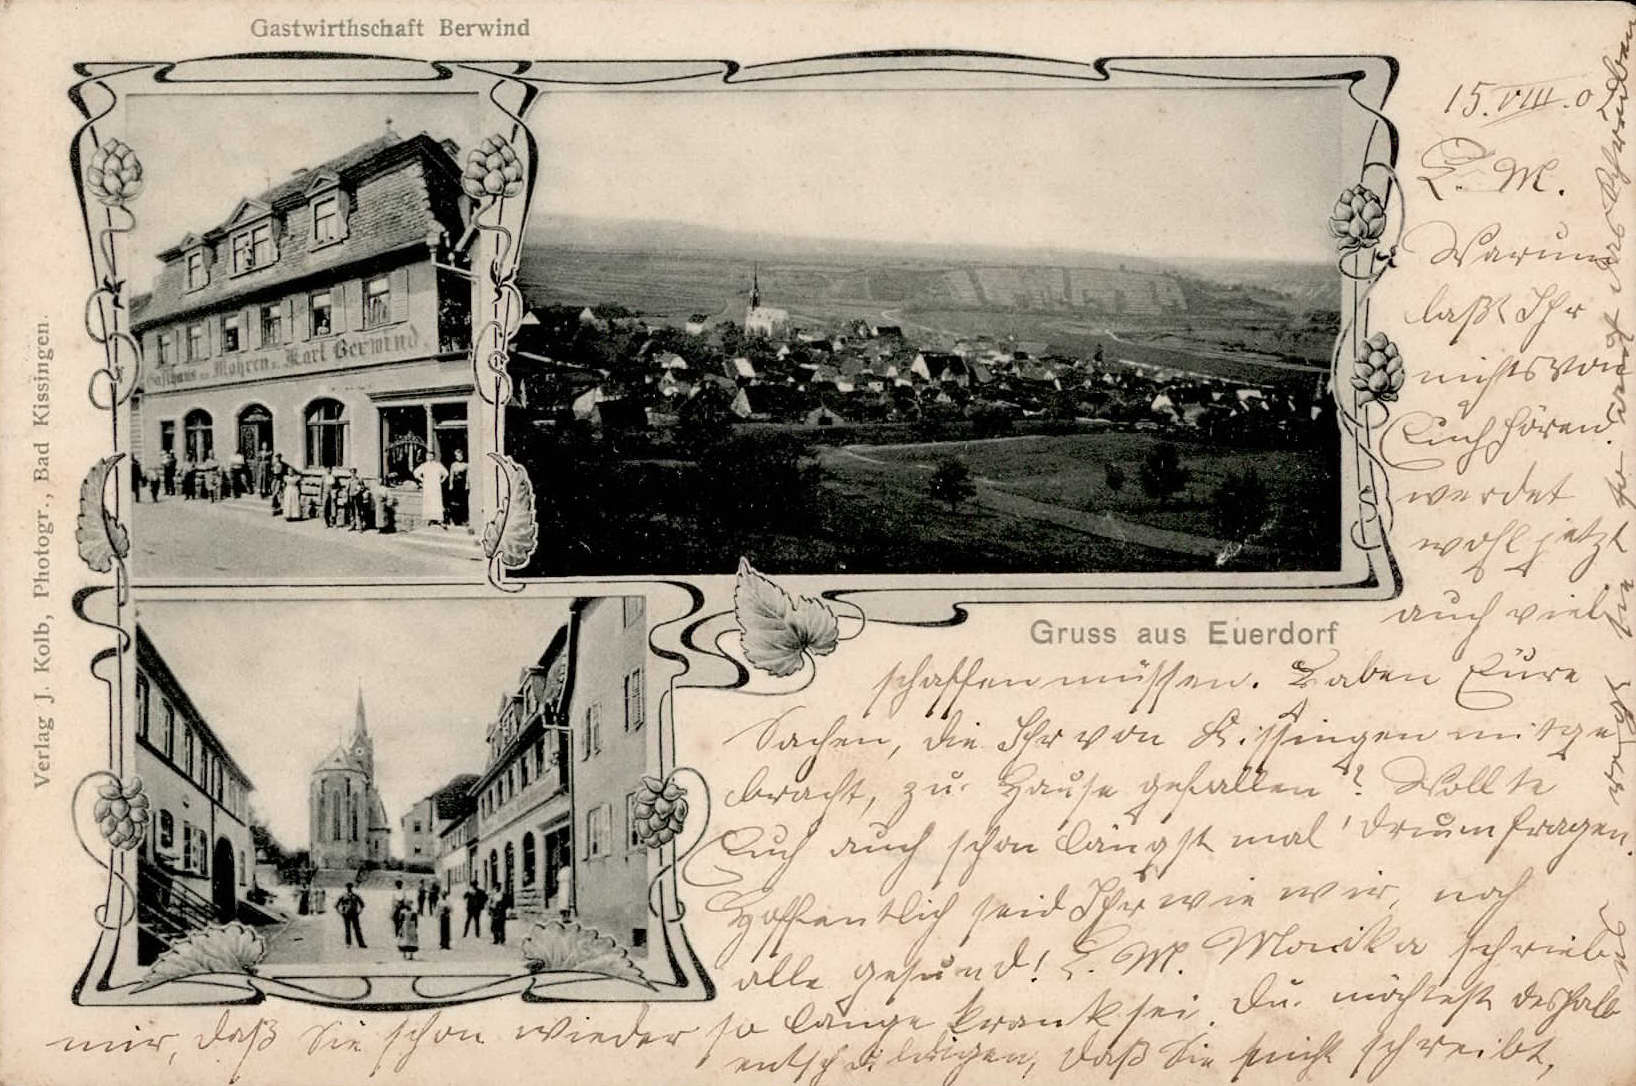 Gastwirthschaft Berwind
Gasthaus zum Mohren v. Karl Berwind.
Verlag J. Kolb, Photogr., Bad Kissingen.
Gruss aus Euerdorf
15.VIII.0
L. M.
Warum
laßt Ihr
nichts von
Euch hören?
werdet
wohl jetzt
auch viel
schaffen müssen. Haben Eure
Sachen, die Ihr von Kissingen mitge
bracht, zu Hause gefallen? Wollte
Euch auch schon längst mal drum fragen.
Hoffentlich seid Ihr wie wir, noch
alle gesund! L. M. schrieb
mir, daß Sie schon wieder so lange krank sei. Du möchtest deshalb
entschuldigen, daß Sie nicht schreibt,